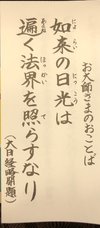 お大師さまのおことば
如来の日光は
遍く法界を照らすなり
(大日経略開題)